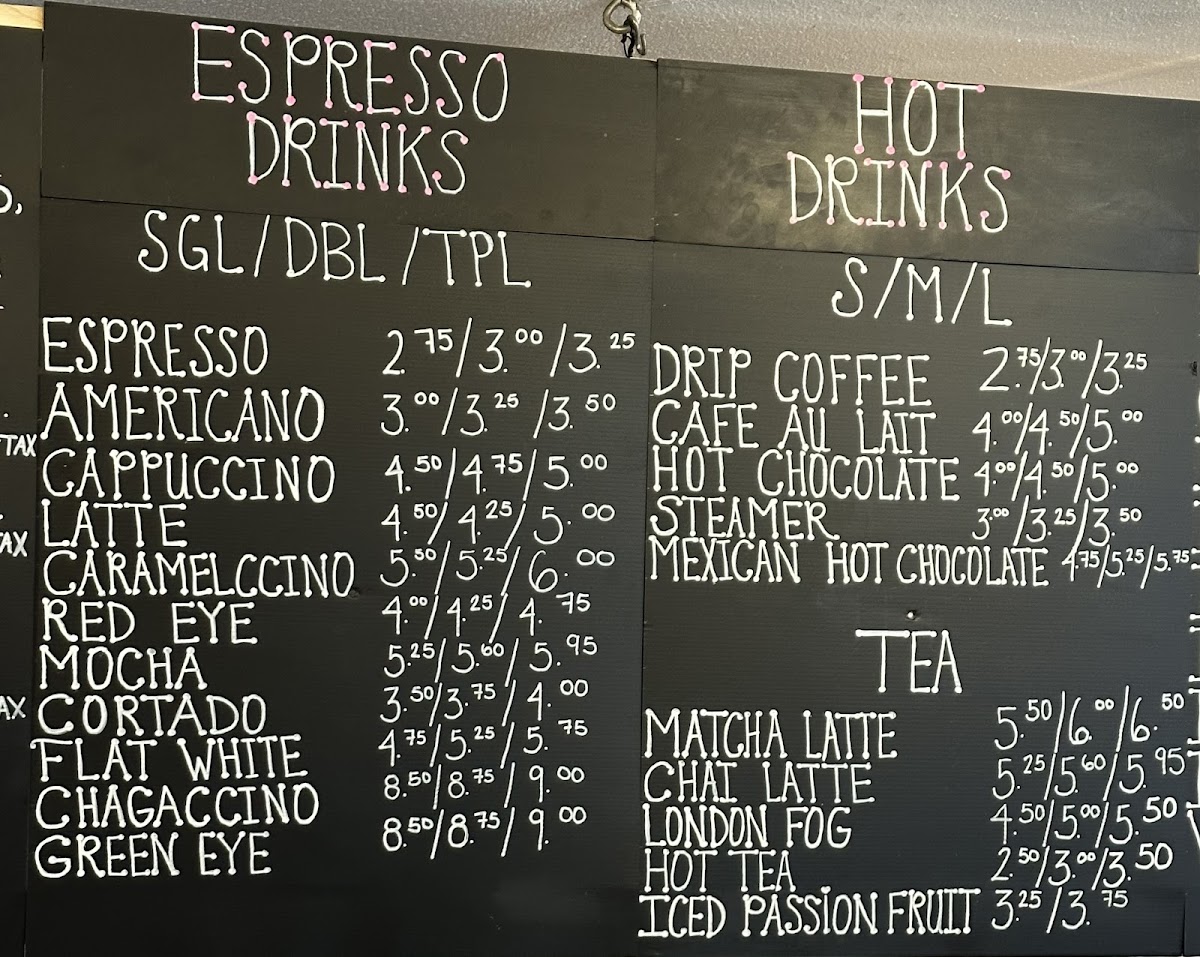 ESPRESSO
DRINKS
SGL/DBL/TPL
ESPRESSO 2.75/3.00/3.25
AMERICANO 3.00/3.25/3.50
CAPPUCCINO 4.50/4.75/5.00
LATTE 4.50/4.25/5.00
CARAMELCCINO 5.50/5.25/6.00
RED EYE 4.00/4.25/4.75
MOCHA 5.25/5.60/5.95
CORTADO 3.50/3.75/4.00
FLAT WHITE 4.75/5.25/5.75
CHAGACCINO 8.50/8.75/9.00
GREEN EYE 8.50/8.75/9.00
HOT
DRINKS
S/M/L
DRIP COFFEE 2.75/3.00/3.25
CAFE AU LAIT 4.00/4.50/5.00
HOT CHOCOLATE 4.00/4.50/5.00
STEAMER 3.00/3.25/3.50
MEXICAN HOT CHOCOLATE 4.75/5.25/5.75
TEA
MATCHA LATTE 5.50/6.00/6.50
CHAI LATTE 5.25/5.60/5.95
LONDON FOG 4.50/5.00/5.50
HOT TEA 2.50/3.00/3.50
ICED PASSION FRUIT 3.25/3.75